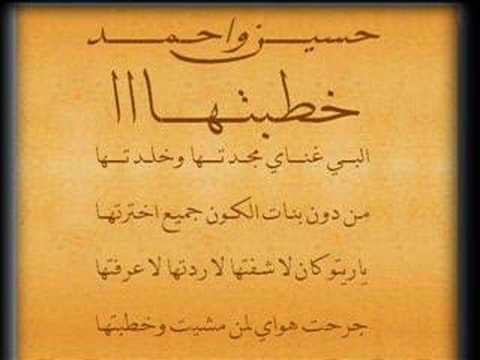 حسين واحمد
خطبتهااا
البي غناي مجدتها وخلدتها
من دون بنات الكون جميع اخترتها
ياريتو كان لا شفتها لا ردتها لا عرفتها
جرحت هواي لمن مشيت وخطبتها